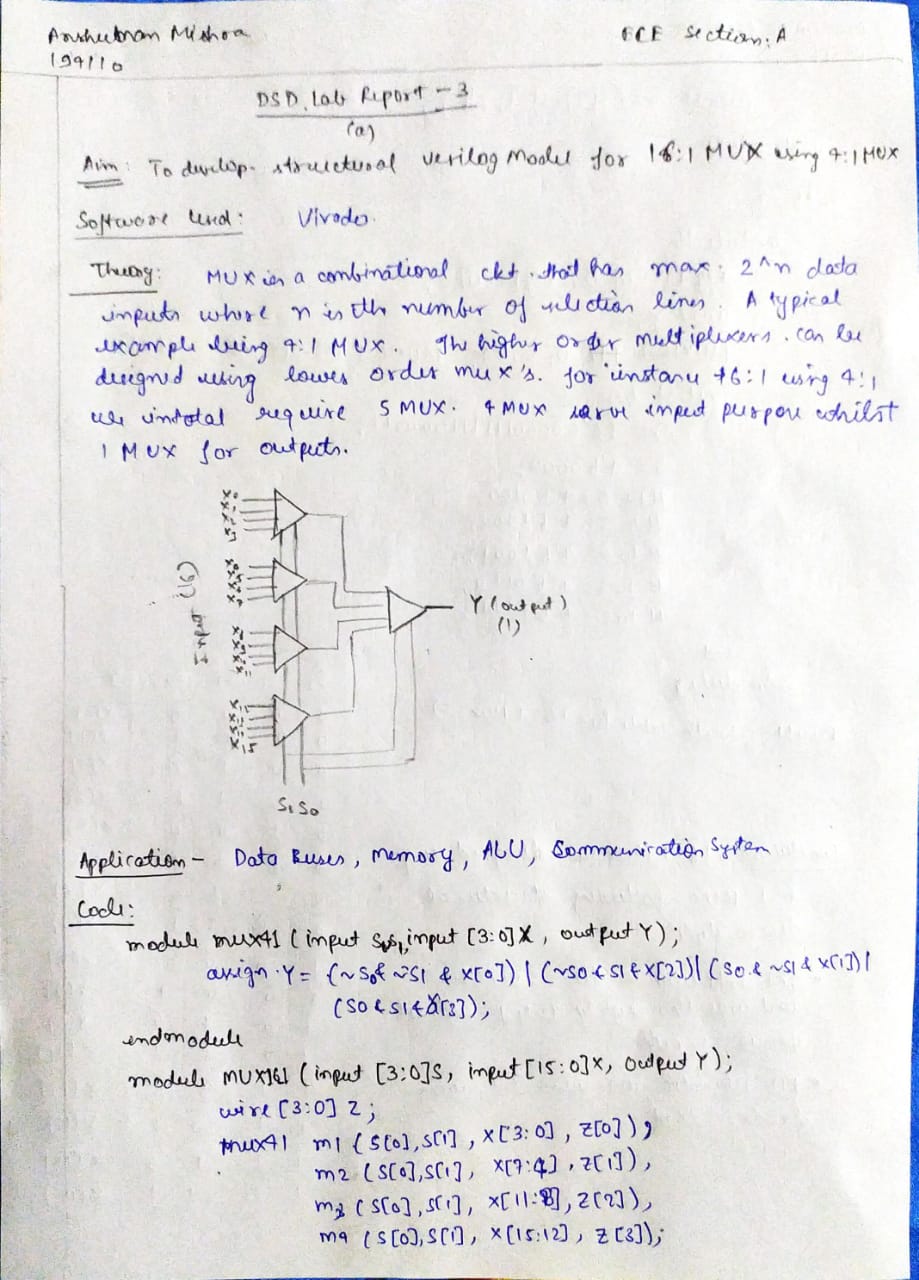 Anshuman Mishra
ECE section: A
194110
DSD Lab Report - 3
(a)
Aim: To develop structural verilog Model for 16:1 MUX using 4:1 MUX
Software Used: Vivado.
Theory: MUX is a combinational ckt. that has max. 2^n data
inputs where n is the number of selection lines. A typical
example being 4:1 MUX. The higher order multiplexers. can be
designed using lower order mux's. for instance 16:1 using 4:1
we in total require 5 MUX. 4 MUX serve input purpose whilst
1 MUX for outputs.
Input (16)
Y (output)
(1)
S1 S0
Application - Data Buses, Memory, ALU, Communication System
Code:
module mux41 (input S0,S1,input [3:0]X, output Y);
assign Y= (~S0& ~S1 & X[0]) | (~S0 & S1 & X[2])| (S0 & ~S1 & X[1])|
(S0 & S1 & X[3]);
endmodule
module MUX161 (input [3:0]S, input [15:0]X, output Y);
wire [3:0] Z;
mux41 m1 (S[0],S[1], X[3:0], Z[0]),
m2 (S[0],S[1], X[7:4], Z[1]),
m3 (S[0],S[1], X[11:8], Z[2]),
m4 (S[0],S[1], X[15:12], Z[3]);